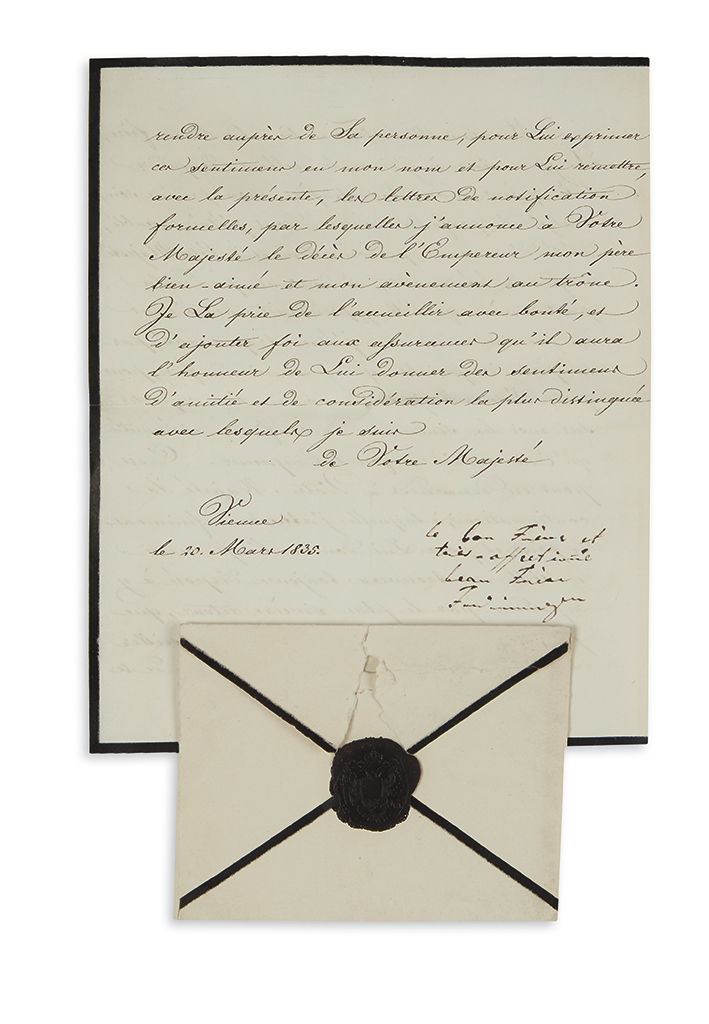 rendre auprès de Sa personne, pour Lui exprimer
ces sentimens en mon nom et pour Lui remettre,
avec la présente, les lettres de notification
formelles, par lesquelles j'annonce à Votre
Majesté le décès de l'Empereur mon père
bien-aimé et mon avènement au trône.
Je La prie de l'accueillir avec bonté, et
d'ajouter foi aux assurances qu'il aura
l'honneur de Lui donner des sentimens
d'amitié et de considération la plus distinguée
avec lesquels je suis
de Votre Majesté
Vienne
le 20. Mars 1835.
le bon Frère et
très-affectionné
beau Frère